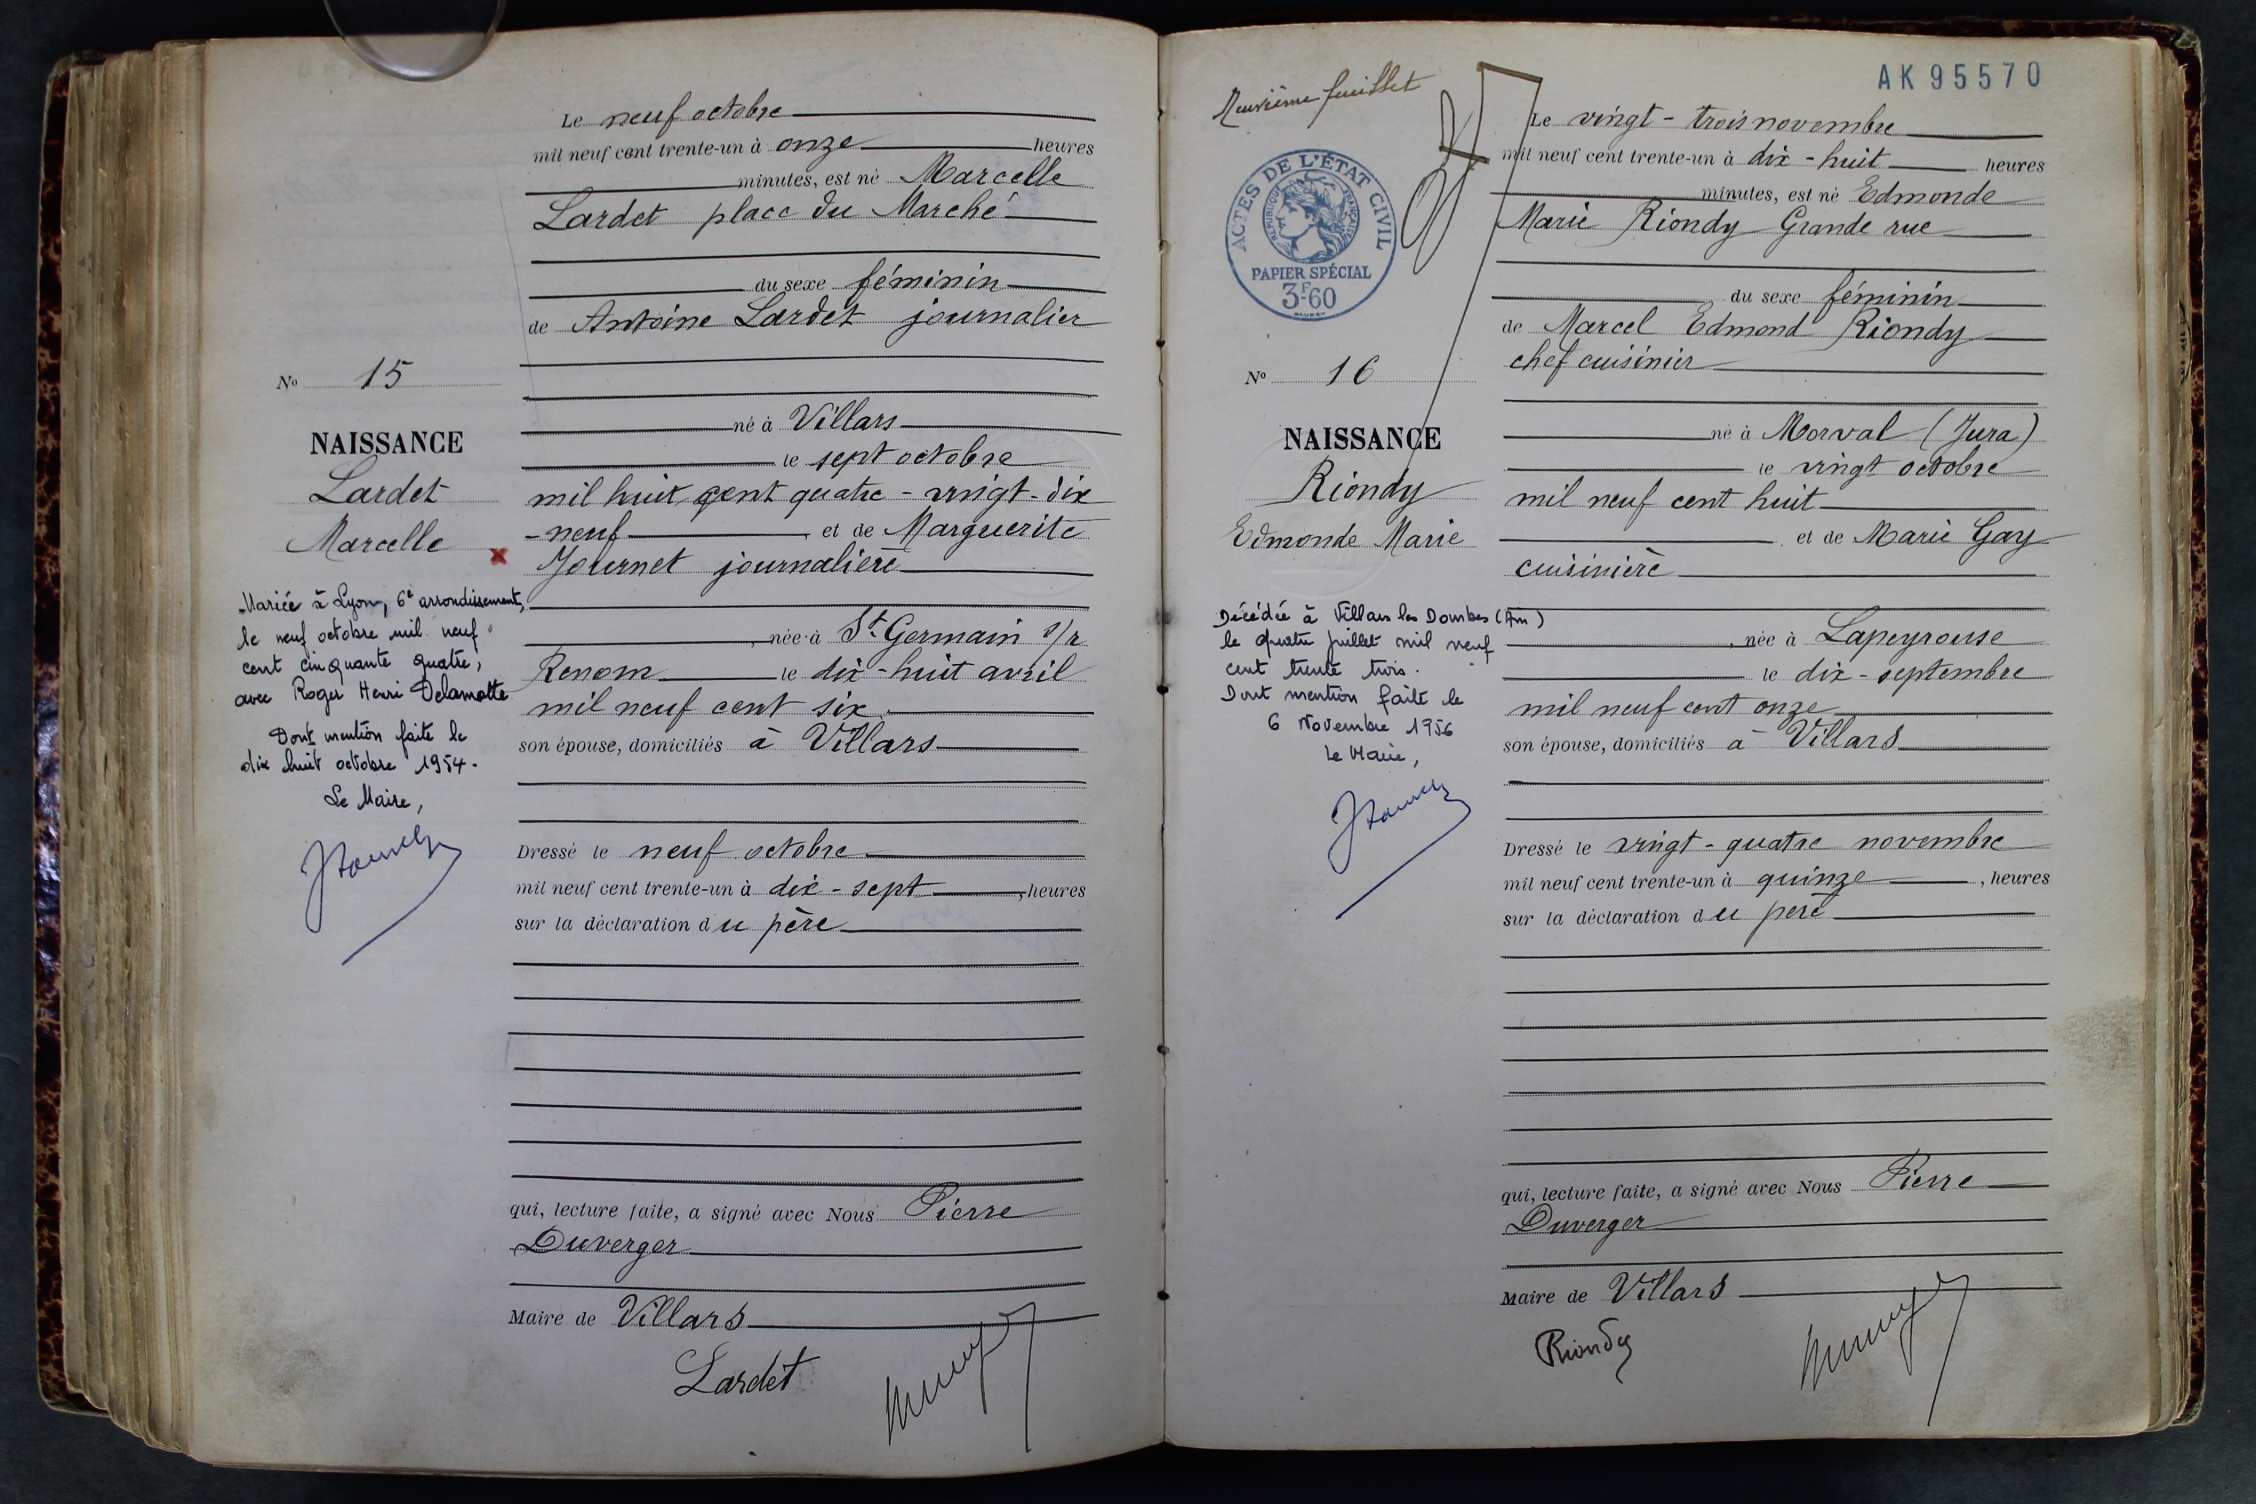 Le neuf octobre
mil neuf cent trente-un à onze heures
minutes, est né Marcelle
Lardet place du Marché
du sexe féminin
de Antoine Lardet journalier
né à Villars
le sept octobre
mil huit cent quatre-vingt-dix
-neuf et de Marguerite
Journet journalière
née à St Germain s/r
Renom le dix-huit avril
mil neuf cent six
son épouse, domiciliés à Villars
Dressé le neuf octobre
mil neuf cent trente-un à dix-sept, heures
sur la déclaration du père
qui, lecture faite, a signé avec Nous Pierre
Duverger
Maire de Villars
Lardet
No 15
NAISSANCE
Lardet
Marcelle
Mariée à Lyon, 6e arrondissement,
le neuf octobre mil neuf
cent cinquante quatre,
avec Roger Henri Delamotte
Dont mention faite le
dix huit octobre 1954.
Le Maire,
Neuvième feuillet
AK95570
ACTES DE L'ÉTAT CIVIL
RÉPUBLIQUE FRANÇAISE
PAPIER SPÉCIAL
3F60
Le vingt-trois novembre
mil neuf cent trente-un à dix-huit heures
minutes, est né Edmonde
Marie Riondy Grande rue
du sexe féminin
de Marcel Edmond Riondy
chef cuisinier
né à Morval (Jura)
le vingt octobre
mil neuf cent huit
et de Marie Gay
cuisinière
née à Lapeyrouse
le dix-septembre
mil neuf cent onze
son épouse, domiciliés à Villars
Dressé le vingt-quatre novembre
mil neuf cent trente-un à quinze, heures
sur la déclaration du père
qui, lecture faite, a signé avec Nous Pierre
Duverger
Maire de Villars
Riondy
No 16
NAISSANCE
Riondy
Edmonde Marie
Décédée à Villars les Dombes (Ain)
le quatre juillet mil neuf
cent trente trois.
Dont mention faite le
6 Novembre 1956
Le Maire,